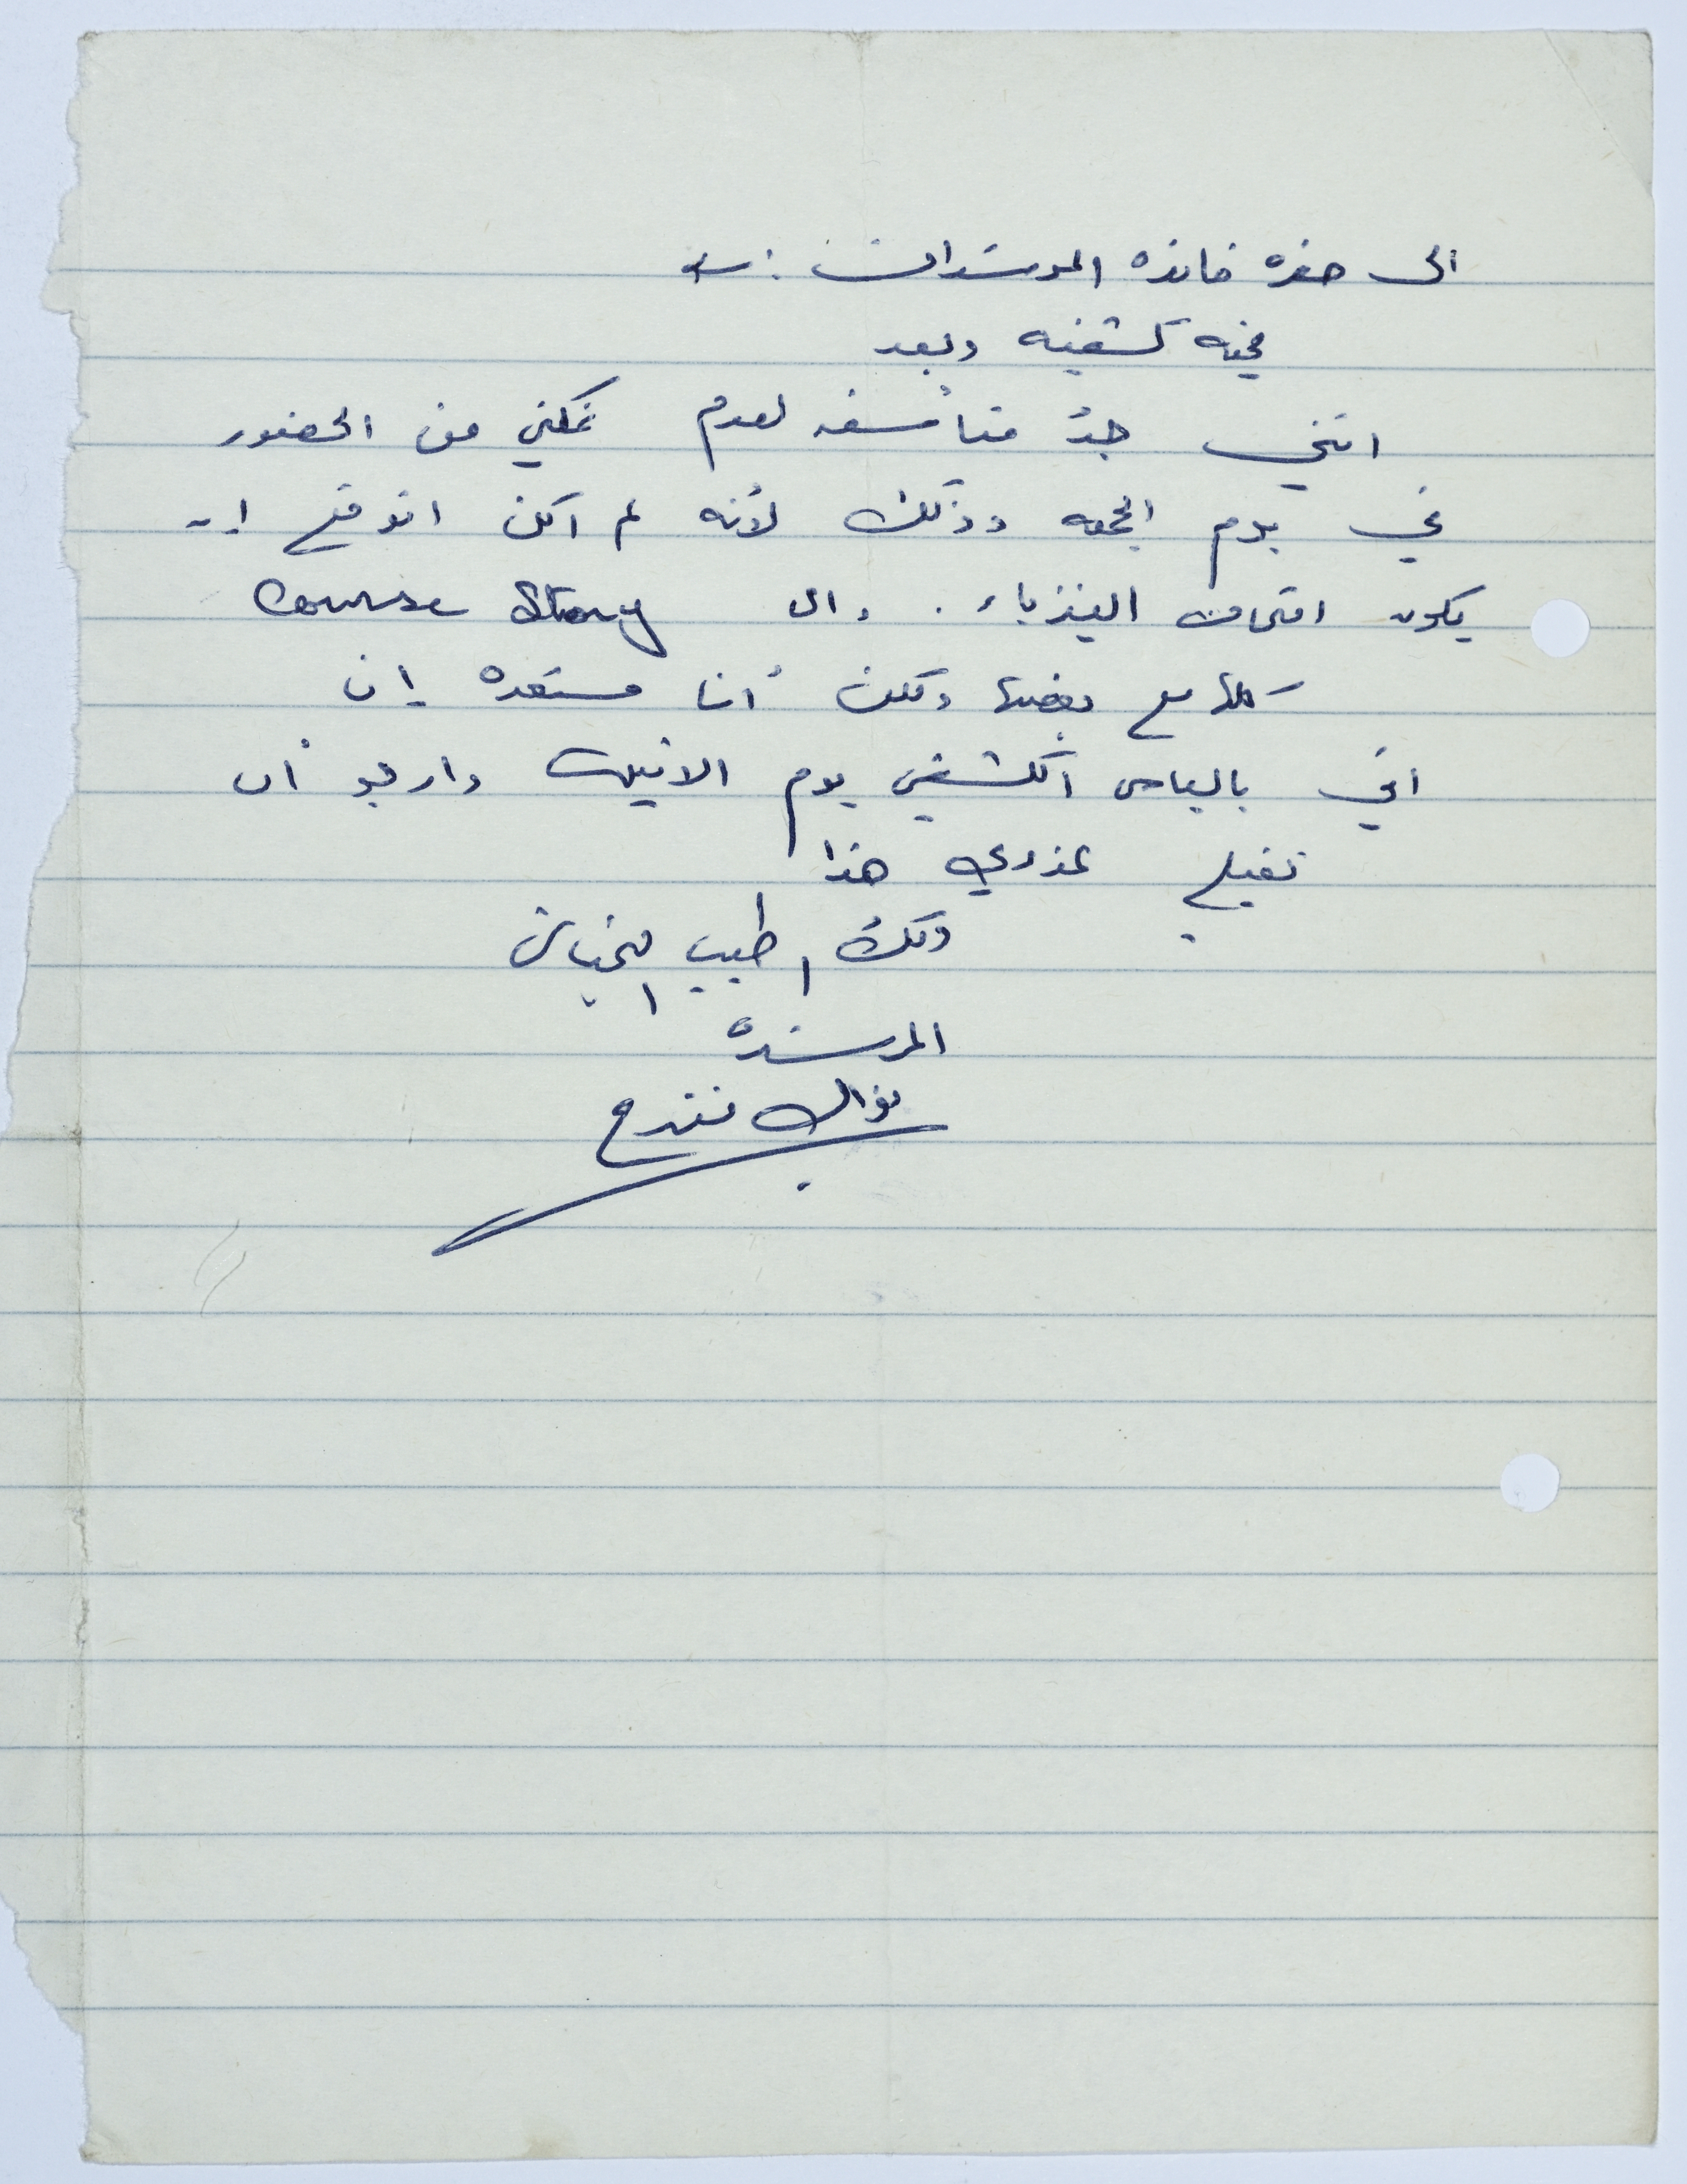 الى حضرة قائدة المرشدات :-
تحيه كشفيه وبعد
انني جدُ متأسفه لعدم تمكني من الحضور
في يوم الجمعه وذلك لأنه لم اكن اتوقع ان
يكون امتحان الفيزياء . وال Course Story
كلها مع بعضها ولكن أنا مستعده إن
اتي بالباص الكشفي يوم الاثنين وارجو أن
تقبلي عذري هذا
ولك اطيب التحيات
المرشده
نوال